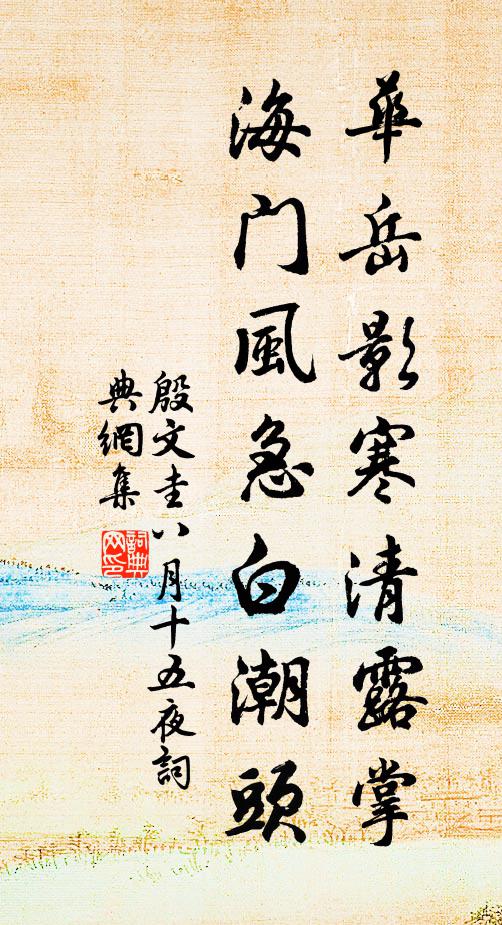 華岳影寒清露掌
海门風急白潮頭
殷文圭八月十五夜詞
典網集
詞典
网印